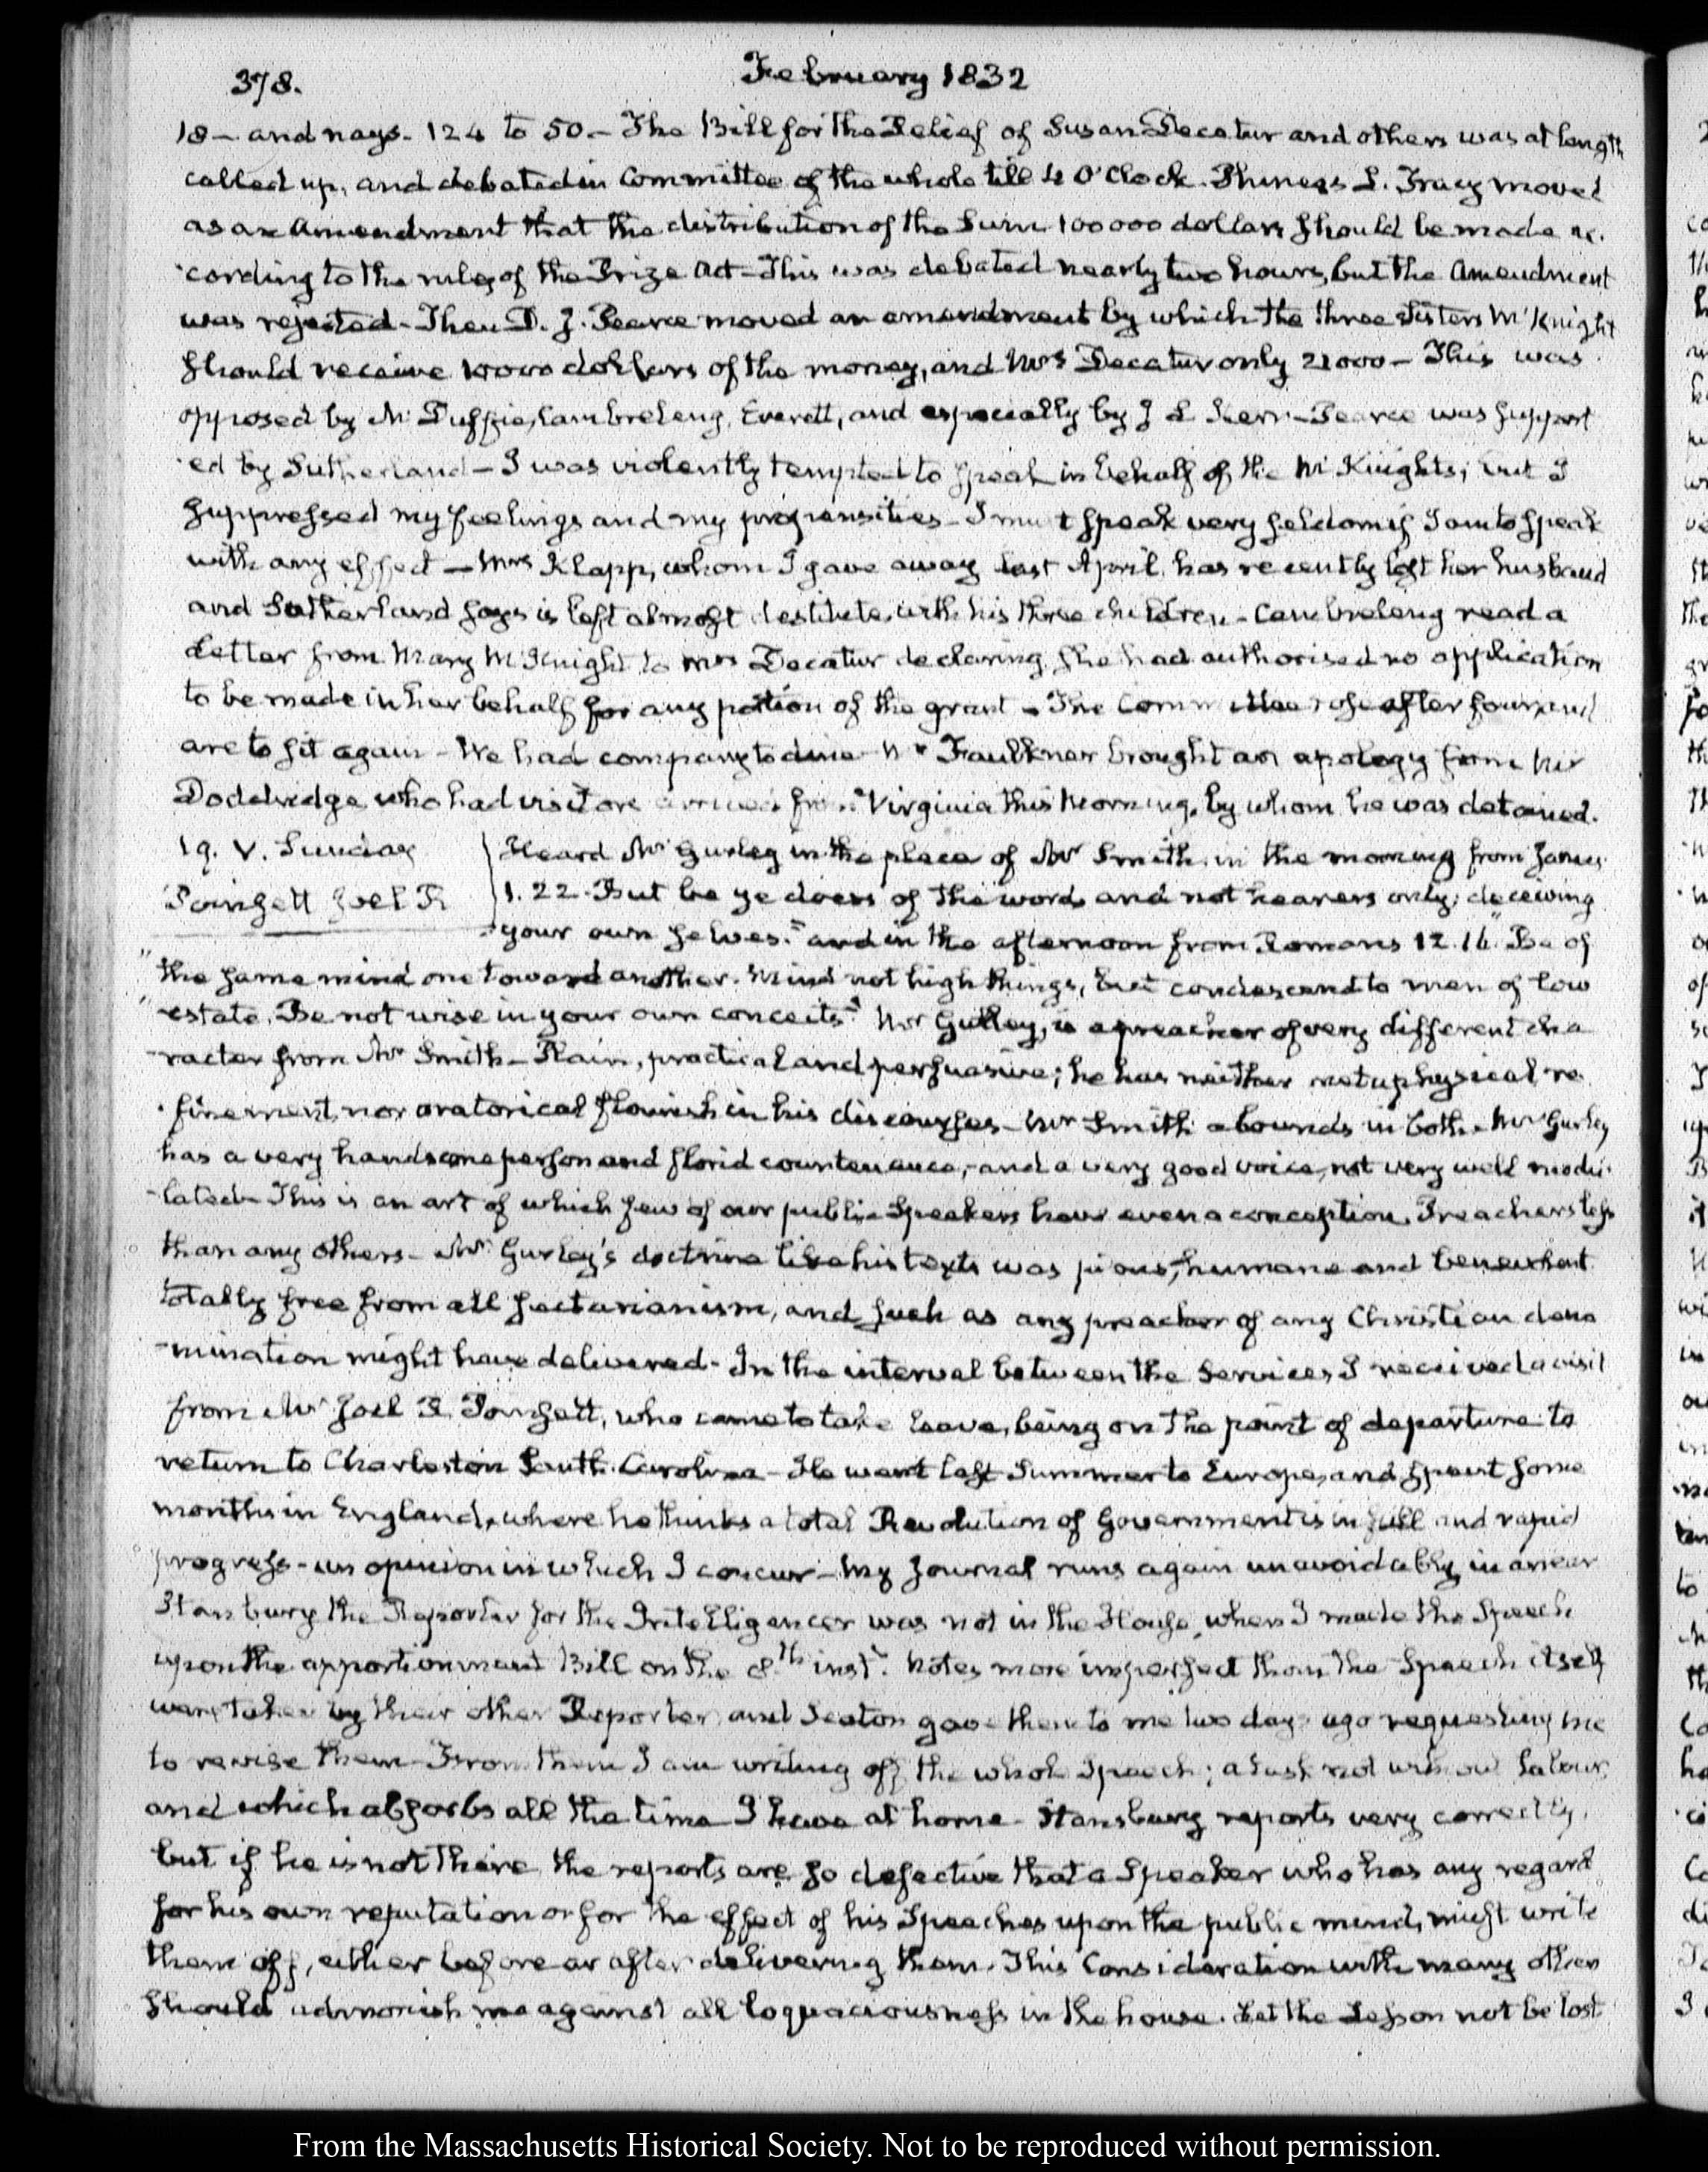 378.
February 1832
18 — and nays. 124 to 50.— The Bill for the Relief of Susan Decatur and others was at length
called up, and debated in Committee of the whole till 4 O'Clock. Phineas L. Tracy moved
as an Amendment that the distribution of the Sum 100000 dollars should be made ac.
cording to the rules of the Prize Act — This was debated nearly two hours, but the Amendment
was rejected — Then D. J. Pearce moved an amendment by which the three Sisters McKnight
should receive 10000 dollars of the money, and Mrs Decatur only 21000 — This was
opposed by McDuffie, Cambreleng, Everett, and especially by J L Kerr — Pearce was support
ed by Sutherland — I was violently tempted to speak in behalf of the McKnights, but I
suppressed my feelings and my propensities — I must speak very seldom if I am to speak
with any effect — Mrs Klapp, whom I gave away last April, has recently lost her husband
and Sutherland says is left almost destitute with his three children — Cambreleng read a
Letter from Mary McKnight to Mrs Decatur declaring she had authorised no application
to be made in her behalf for any portion of the grant — The Committee rose after four, and
are to sit again — We had company to dine — Mr Faulkner brought an apology from Mr
Doddridge, who had visitors arrived from Virginia this Morning, by whom he was detained.
19. V. Sunday
Poinsett Joel R
Heard Mr Gurley in the place of Mr Smith, in the morning from James
1. 22. But be ye doers of the word, and not hearers only, deceiving
your own selves." and in the afternoon from Romans 12. 16. "Be of
"the same mind one toward another. Mind not high things, but condescend to men of low
"estate. Be not wise in your own conceits." Mr Gurley, is a preacher of very different cha
racter from Mr Smith — Plain, practical and persuasive; he has neither metaphysical re
finement, nor oratorical flourish in his discourses — Mr Smith abounds in both. Mr Gurley
has a very handsome person and florid countenance, and a very good voice, not very well modu
lated — This is an art of which few of our public Speakers have even a conception. Preachers less
than any others — Mr Gurley's doctrine like his texts was pious, humane and benevolent
totally free from all sectarianism, and such as any preacher of any Christian deno
mination might have delivered — In the interval between the Services I received a visit
from Mr Joel R Poinsett, who came to take leave, being on the point of departure to
return to Charleston South Carolina — He went last Summer to Europe, and spent some
months in England, where he thinks a total Revolution of Government is in full and rapid
progress — an opinion in which I concur — My Journal runs again unavoidably in arrear
Stansbury the Reporter for the Intelligencer was not in the House, when I made the Speech
upon the apportionment Bill on the 8th inst. Notes more imperfect than the Speech itself
were taken by their other Reporter, and Seaton gave them to me two days ago requesting me
to revise them — From them I am writing off the whole Speech; a task not without labour
and which absorbs all the time I have at home — Stansbury reports very correctly,
but if he is not there the reports are so defective that a Speaker who has any regard
for his own reputation or for the effect of his Speeches upon the public mind, must write
them off, either before or after delivering them. This Consideration with many others
should admonish me against all loquaciousness in the house. Let the Lesson not be lost
From the Massachusetts Historical Society. Not to be reproduced without permission.